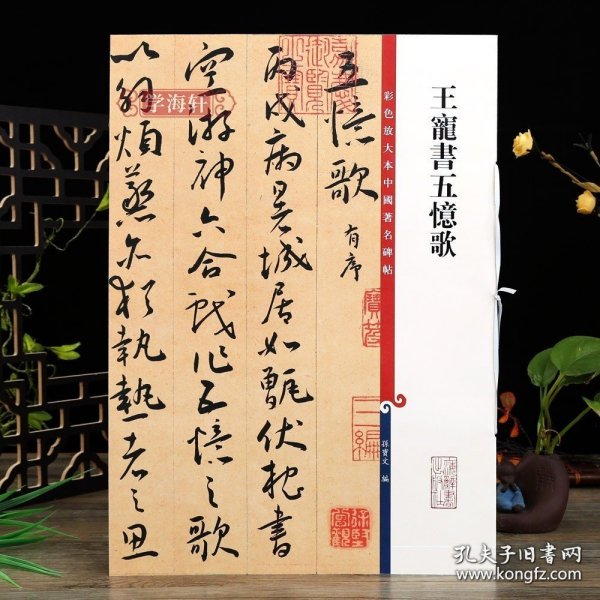 王寵書五憶歌
彩色放大本中國著名碑帖
孫寶文 編
五憶歌 有序
丙戌病暑城居如甑伏枕書
空游神六合戲作五憶之歌
以解煩蒸亦猶執熱者之思
学海轩
孔夫子旧书网
www.kongfz.com